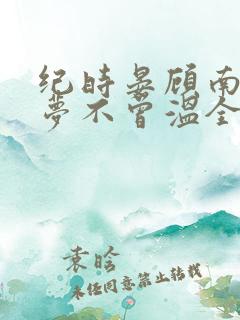 纪时晏顾南
梦不曾温全
袁晗
未经同意禁止转载